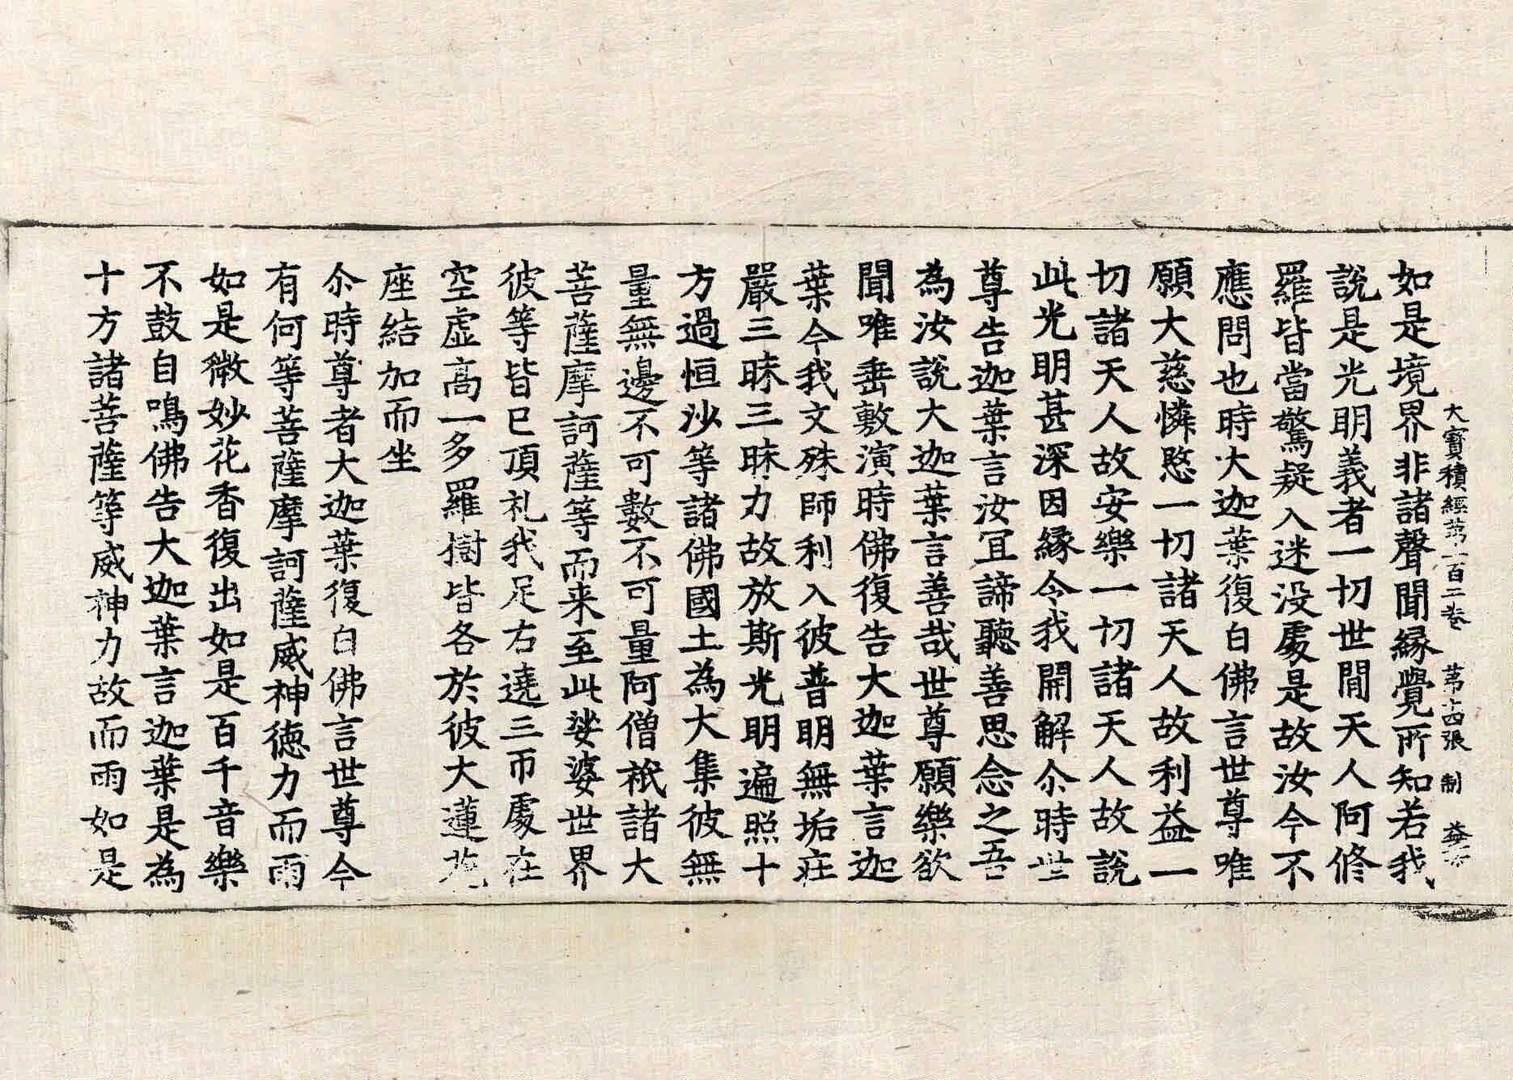 大寳積經第一百二卷 第十四張 制
如是境界非諸聲聞緣覺所知若我
說是光明義者一切世間天人阿修
羅皆當驚疑入迷没處是故汝今不
應問也時大迦葉復白佛言世尊唯
願大慈憐愍一切諸天人故利益一
切諸天人故安樂一切諸天人故說
此光明甚深因緣令我開解尒時世
尊告迦葉言汝冝諦聽善思念之吾
為汝說大迦葉言善哉世尊願樂欲
聞唯垂敷演時佛復告大迦葉言迦
葉今我文殊師利入彼普明無垢莊
嚴三昧三昧力故放斯光明遍照十
方過恒沙等諸佛國土為大集彼無
量無邊不可數不可量阿僧祇諸大
菩薩摩訶薩等而来至此娑婆世界
彼等皆已頂礼我足右遶三帀處在
空虛高一多羅樹皆各於彼大蓮花
座結加而坐
尒時尊者大迦葉復白佛言世尊今
有何等菩薩摩訶薩威神德力而雨
如是微妙花香復出如是百千音樂
不鼓自鳴佛告大迦葉言迦葉是為
十方諸菩薩等威神力故而雨如是